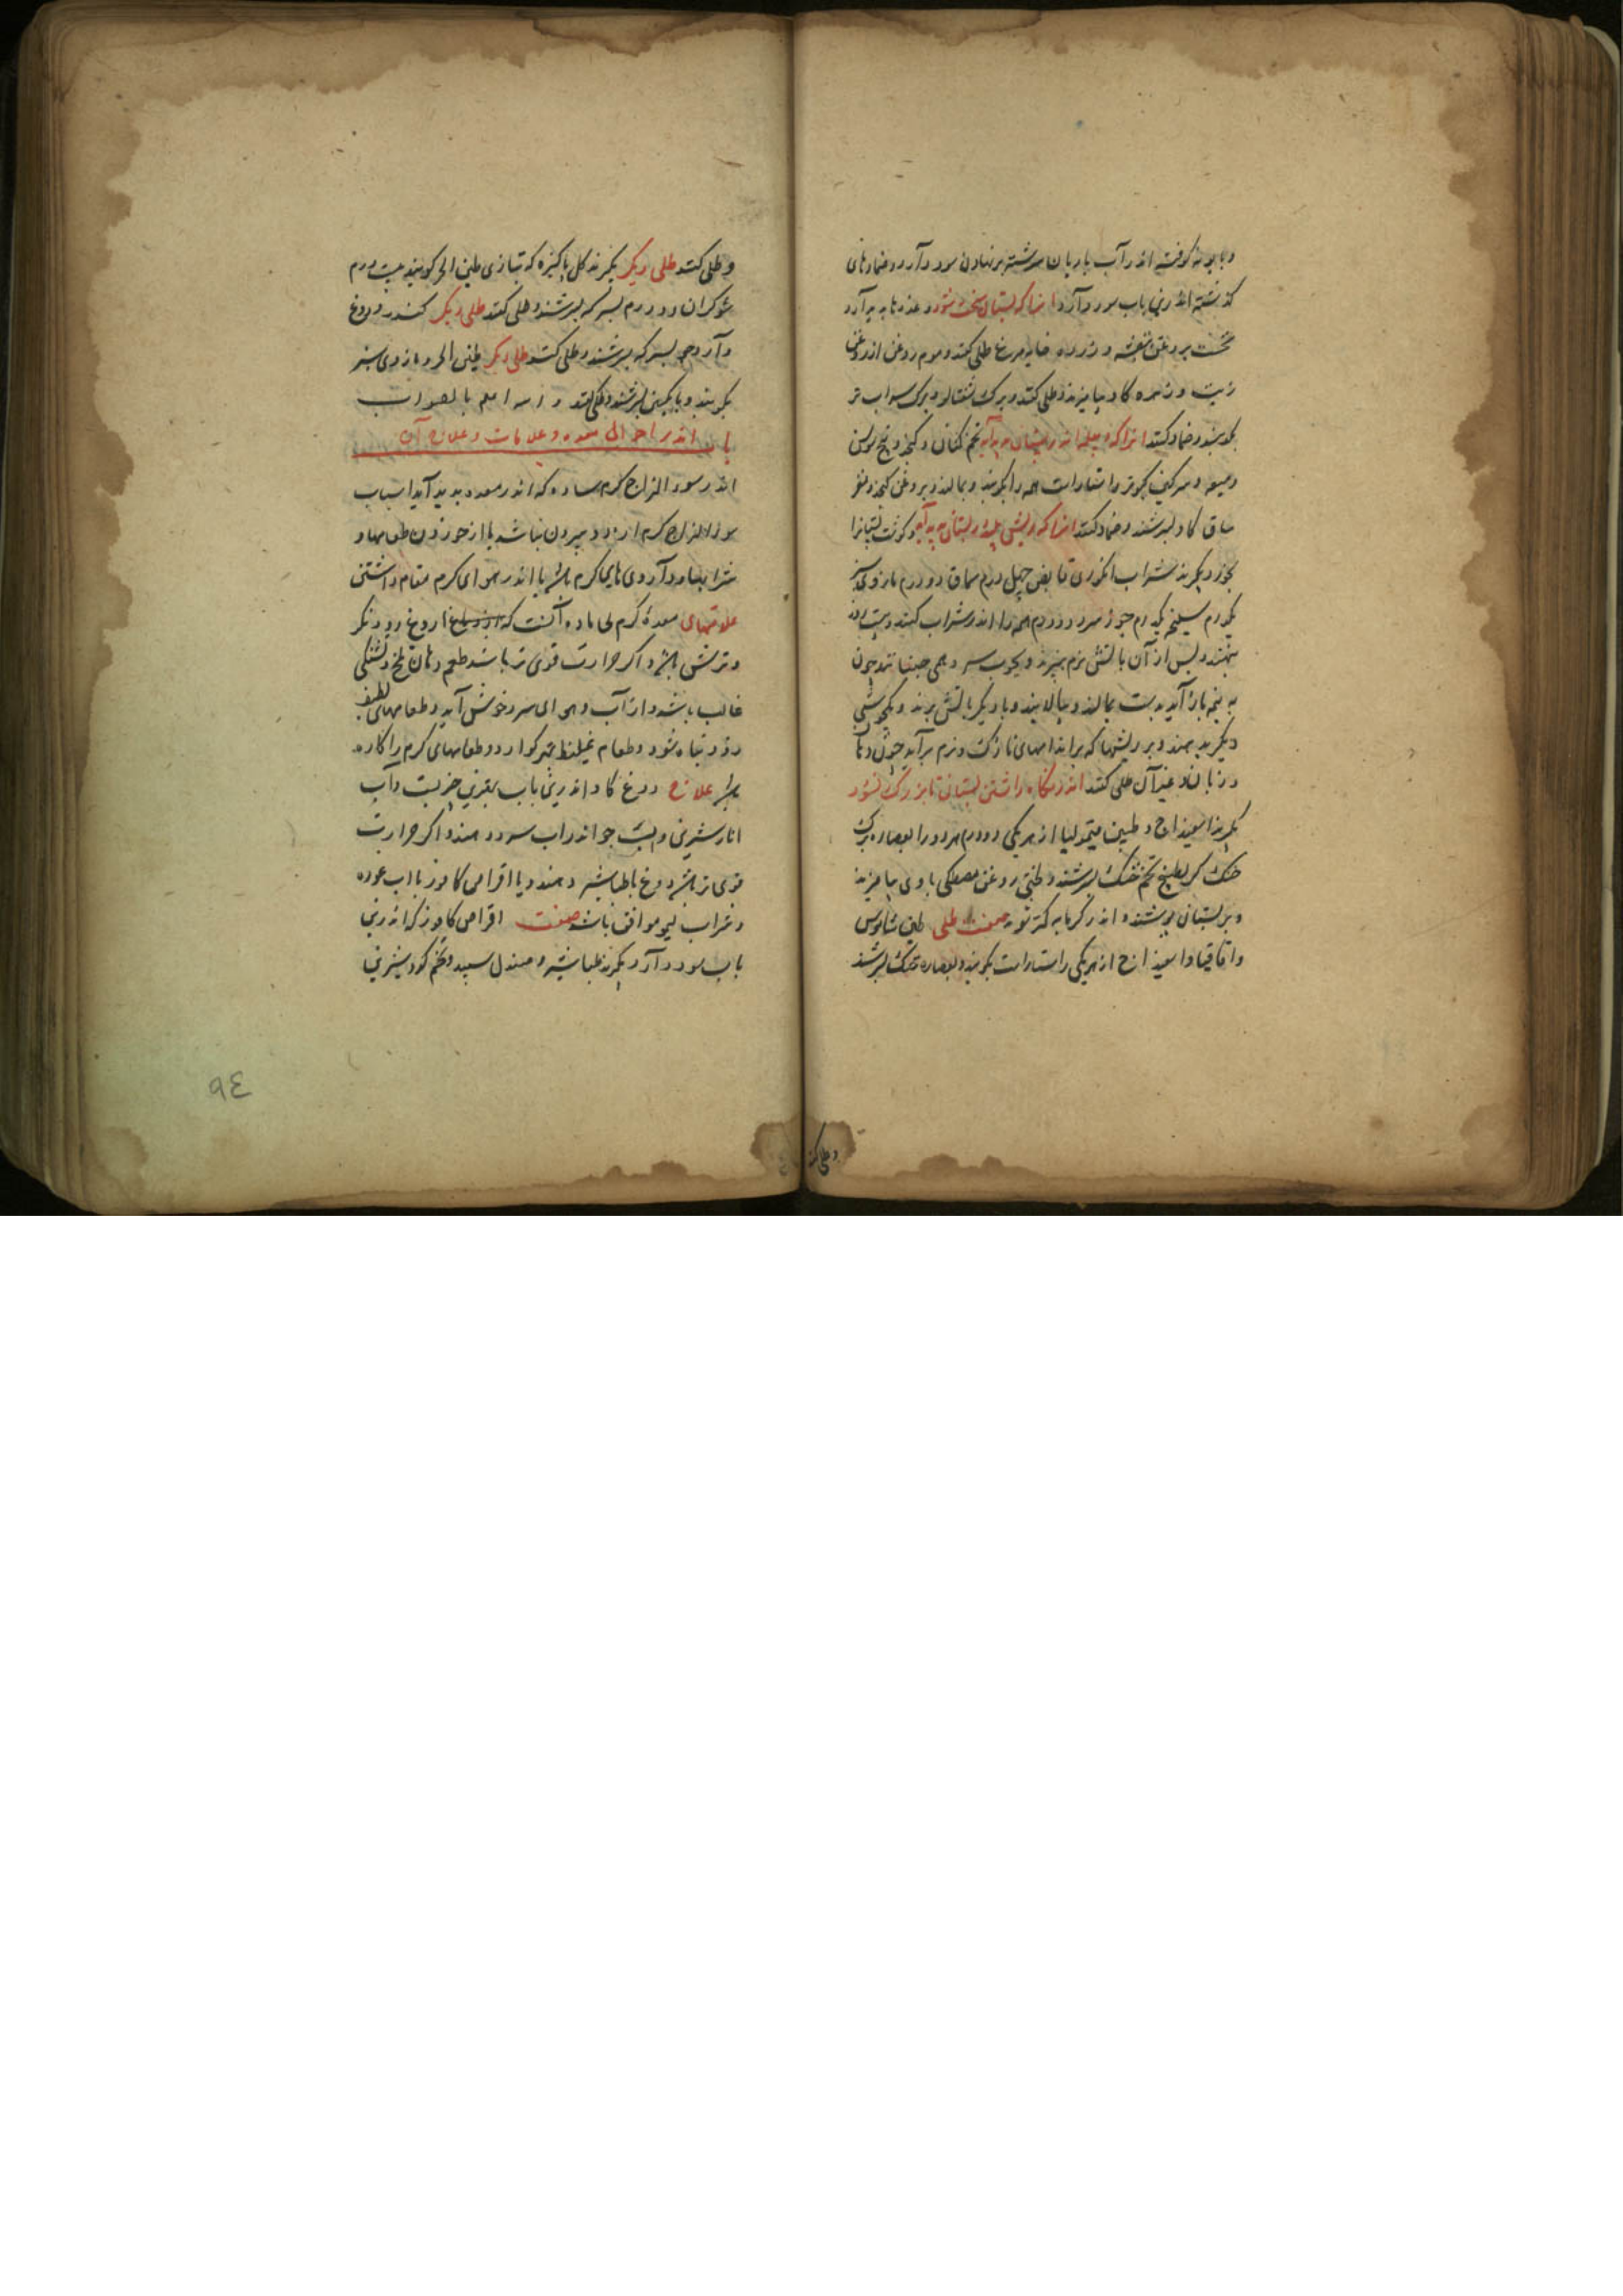 و بابونه کوفته اندر آب بادیان سرشته بر نهادن سود دارد و ضمادهای
گذشته اندرین باب سود دارد انرا که پستان سخت شود و غدد ها پدید آرد
نخست بروغن بنفشه و زرده خایه مرغ طلی کنند و موم روغن از روغن
زیت و زهره کاو بیامیزند و طلی کنند و برک شفتالو و برک سداب تر
بکوبند و ضماد کنند انرا که دبیله اندر پستان پدید آید تخم کتان و کنجد و بیخ سوسن
و میعه و سرکین کبوتر راستاراست همه را بکوبند و بمالند و بروغن کنجد و مغز
ساق کاو بسرشند و ضماد کنند انرا که ریشی پلید در پستان پدید آید و کوشت پستانرا
بخورد بکیرند شراب انکوری قابض چهل درم سماق دو درم مازوی سبز
یکدرم سلیخه یکدرم جوز سرو دو درم همه را اندر شراب کنند و بیست روز
بنهند و پس از آن باتش نرم بپزند و بچوب سرو همی جنبانند چون
به نیمه باز آید بدست بمالند و بپالایند و بار دیکر باتش برند و یکجوشی
دیکر بدهند و بر ریشها که بر اندامهای نازک و نرم برآید چون دهان
و زبان و غیر آن طلی کنند اندر نکاه داشتن پستان تا بزرک نشود
بکیرند اسفیداج و طین قیمولیا از هر یکی دو درم هر دو را بعصاره برک
خنک کی بطبیخ تخم خنک بسرشند و لختی روغن مصطکی با وی بیامیزند
و بر پستان پوشند و اندر کرمابه کمتر شوند صفت طلی طین شاموس
و اقاقیا و اسفیداج از هر یکی راستاراست بکوبند و بعصاره خنک بسرشند
و طلی کنند
و طلی کنند طلی دیکر بکیرند کل پاکیزه که بتازی طین الحر کویند بیست درم
شوکران دو درم بسرکه بسرشند و طلی کنند طلی دیکر کندر و دوغ
و آرد جو بسرکه بسرشند و طلی کنند طلی دیکر طین الحر و مازوی سبز
بکوبند و بانکبین بسرشند و طلی کنند و الله اعلم بالصواب
باب اندر احوال معده و علامات و علاج آن
اندر سوء المزاج کرم ساده که اندر معده پدید آید اسباب
سوء المزاج کرم از دو بیرون نباشد یا از خوردن طعامها و
شرابها و داروی هایی کرم باشد یا اندر هوای کرم مقام داشتن
علامتهای معدۀ کرم بی ماده آنست که آروغ دودناک
و ترش باشد و اکر حرارت قوی تر باشد طعم دهان تلخ و تشنکی
غالب باشد و از آب و هوای سرد خوش آید و طعامهای لطیف
زود تباه شود و طعام غلیظ بهتر کوارد و طعامهای کرم را کاره
باشد علاج دوغ کاو اندرین باب بهترین چیزیست و آب
انار شیرین و پست جو اندر اب سرد دهند و اکر حرارت
قوی تر باشد دوغ با طباشیر دهند و یا اقراص کافور با اب غوره
و شراب لیمو موافق باشد صفت اقراص کافور که اندرین
باب سود دارد بکیرند طباشیر و صندل سپید و تخم کوک شیرین
۹٤